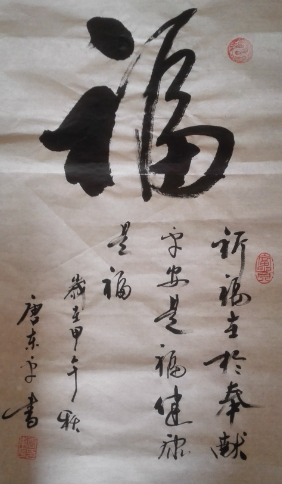 福
祈福主於奉献
平安是福健康
是福
歲在甲午秋
唐东平书